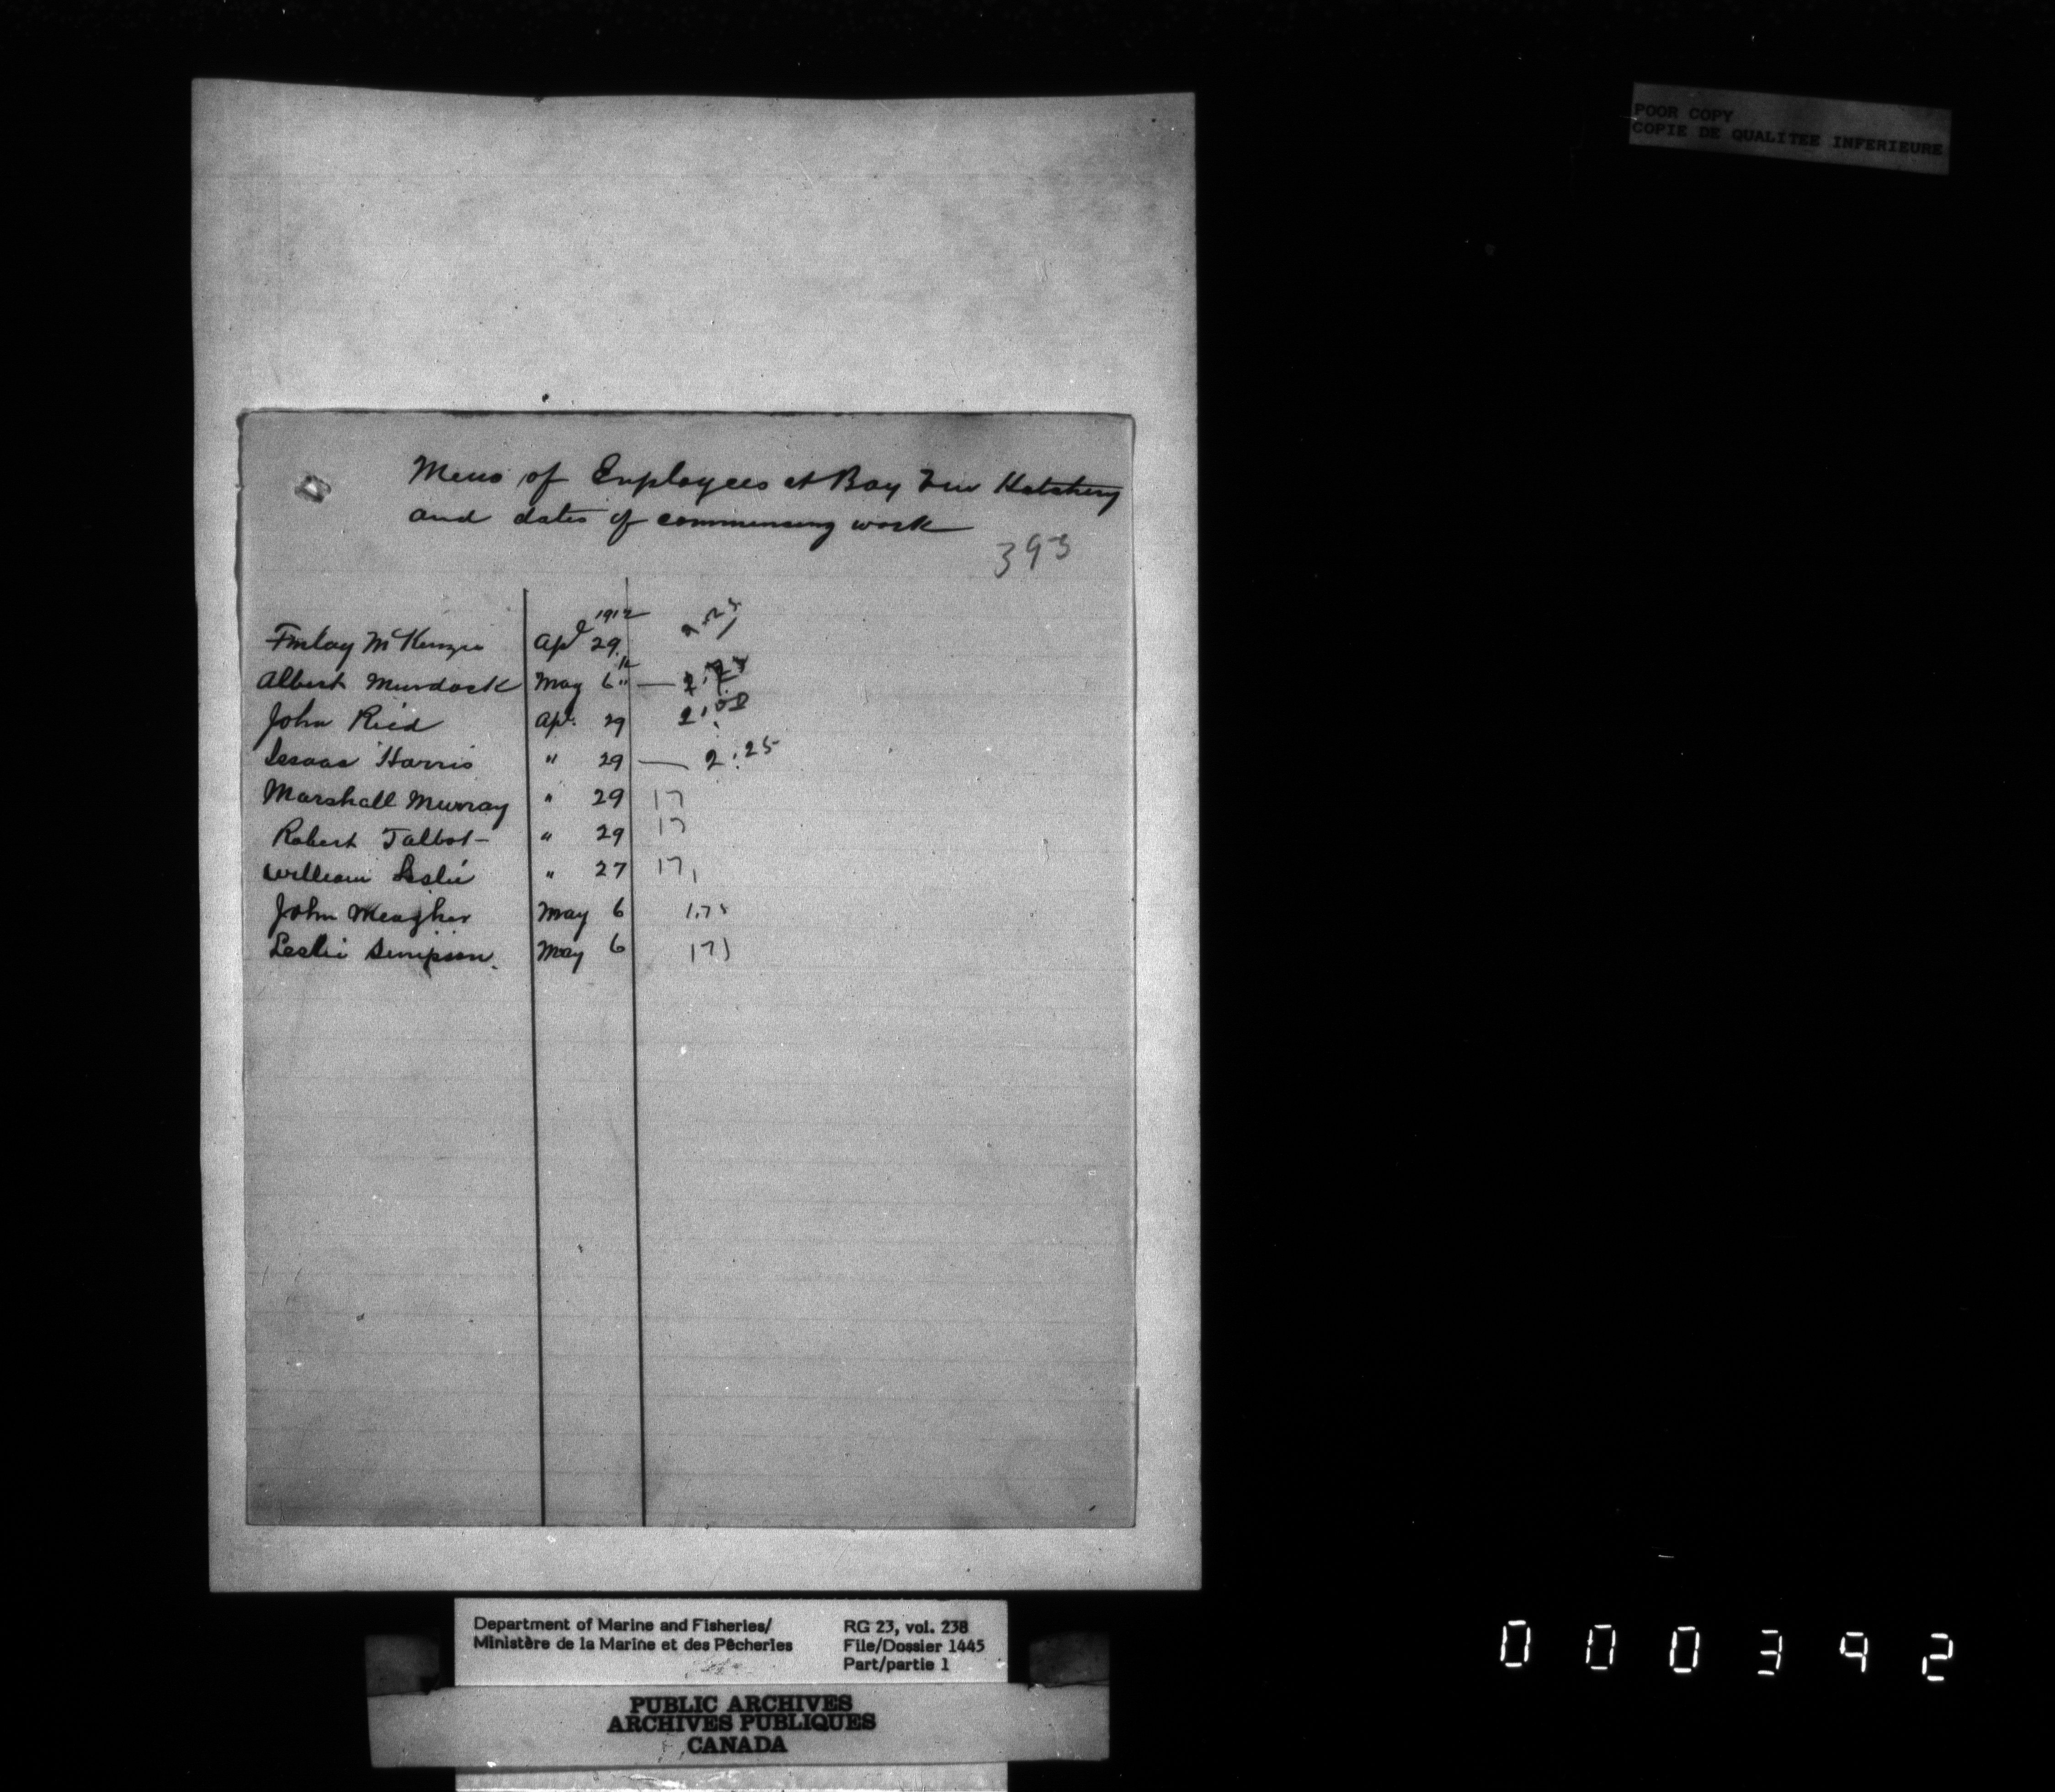 POOR COPY
COPIE DE QUALITEE INFERIEURE
Memo of Employees at Bay Hatchery
and dates of commencing work
393
1912
Finlay McKenzie Apl 29 2.25
Albert Murdock May 6 —
John Reid Apl. 29 2.00
Isaac Harris " 29 — 2.25
Marshall Murray " 29 17
Robert Talbot " 29 17
William Leslie " 27 17
John Meagher May 6 1.75
Leslie Simpson. May 6
Department of Marine and Fisheries/ RG 23, vol. 238
Ministère de la Marine et des Pêcheries File/Dossier 1445
Part/partie 1
PUBLIC ARCHIVES
ARCHIVES PUBLIQUES
CANADA
000392